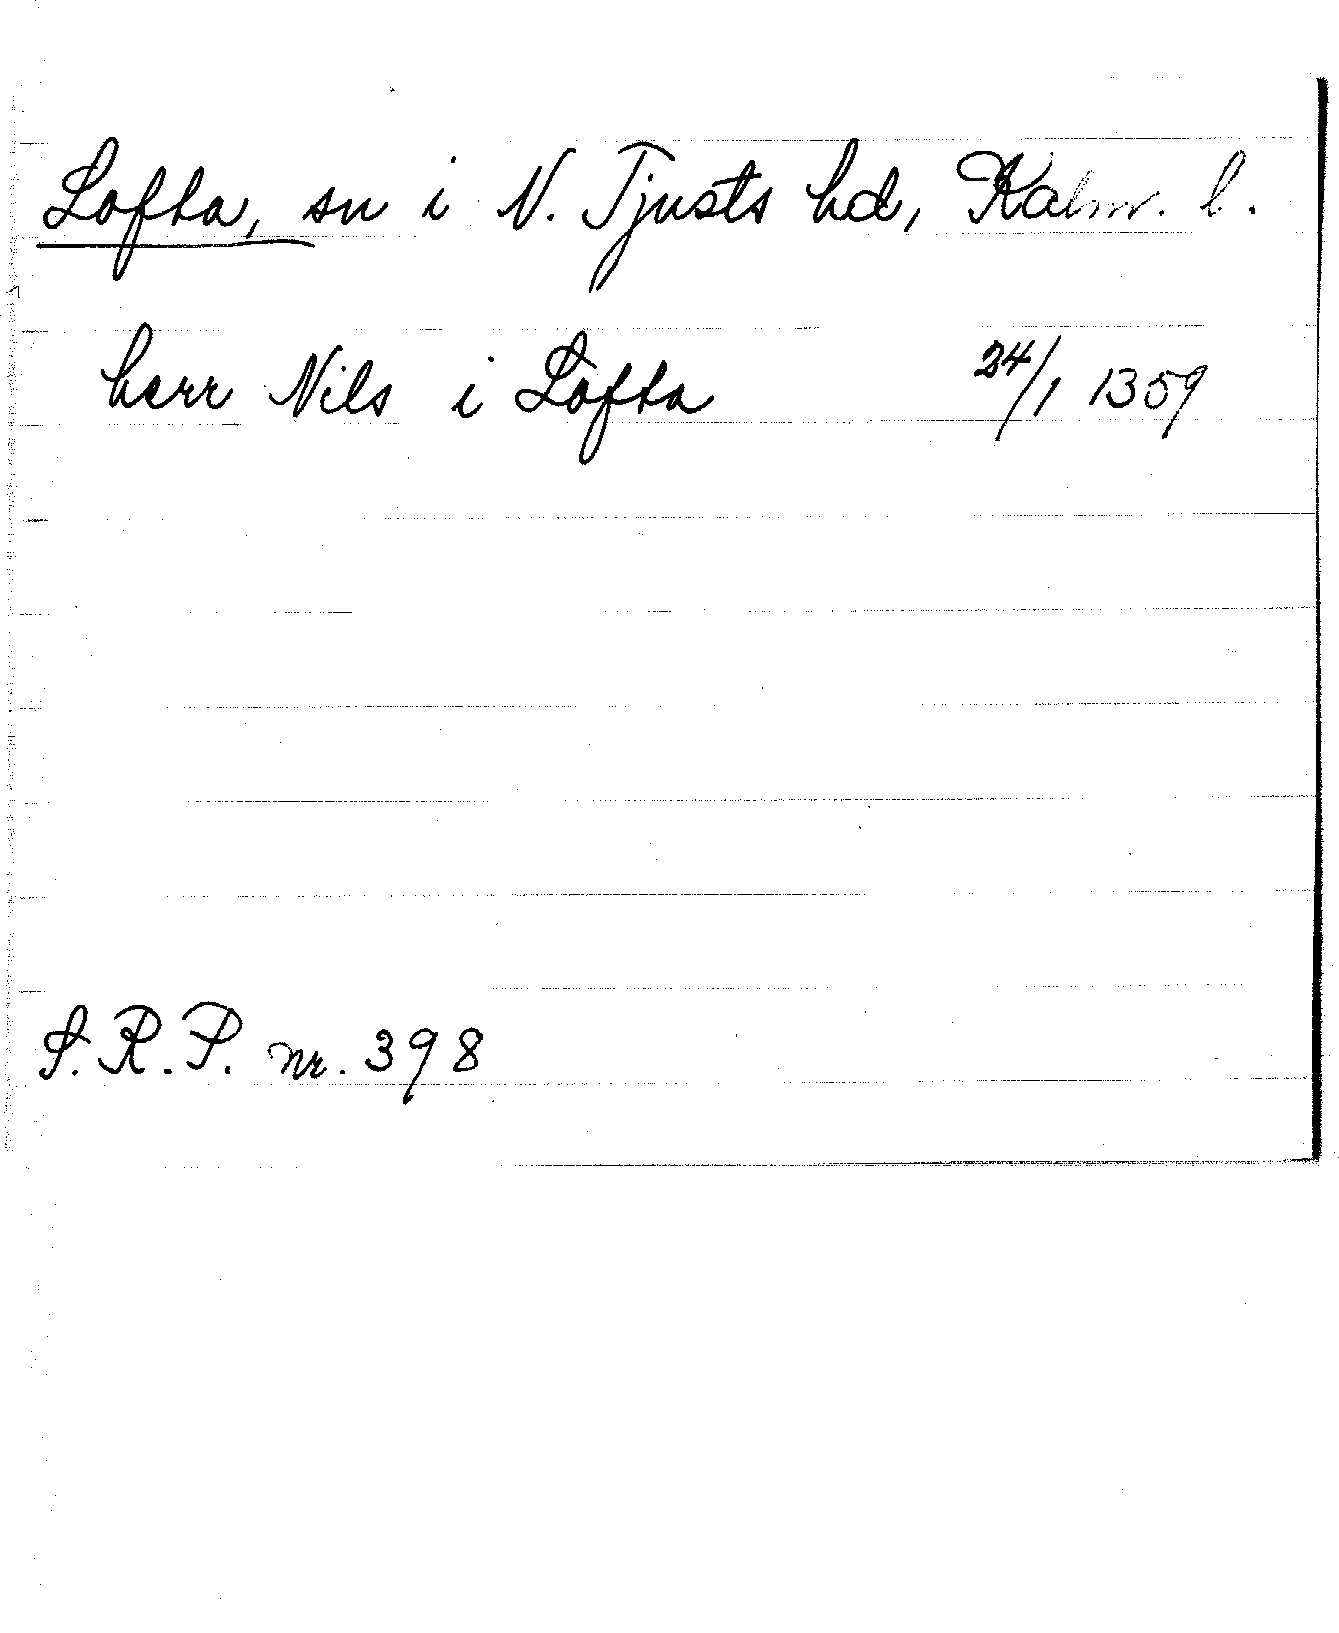 Lofta, sn i N. Tjusts hd, Kalm. l.
herr Nils i Lofta 24/1 1359
S.R.P. nr. 398